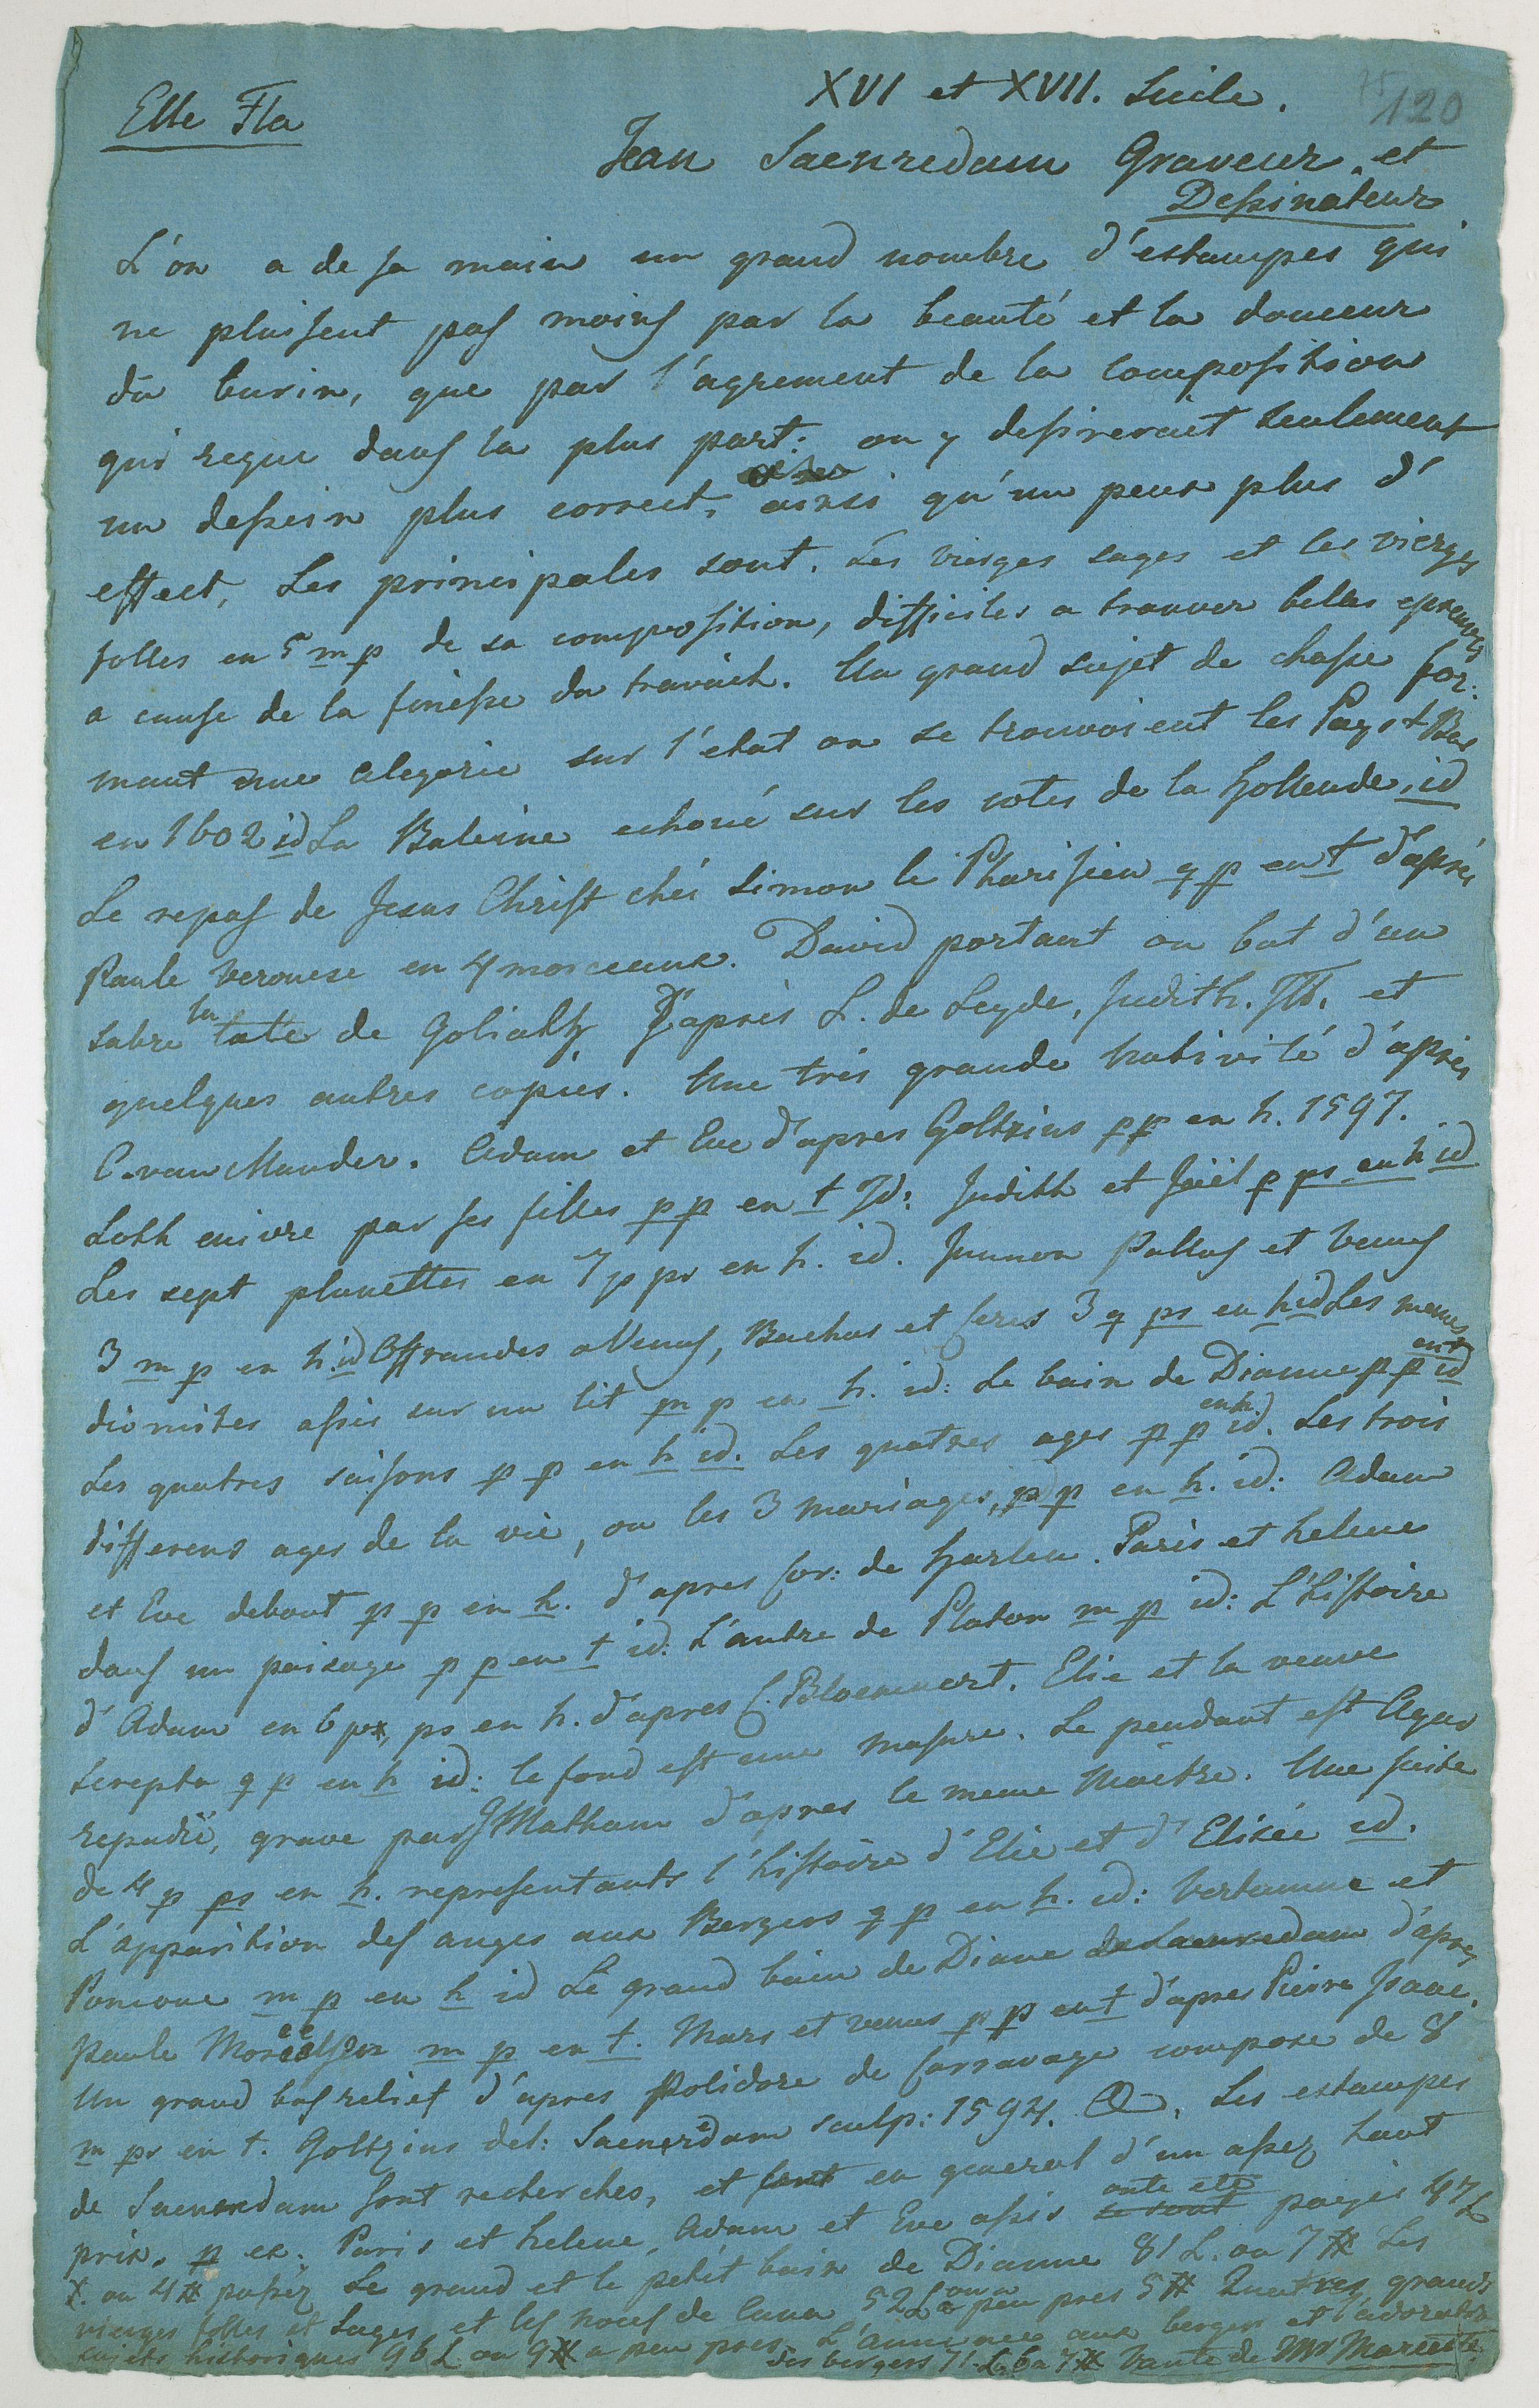 XVI et XVII. Siecle.
75
120
Elle Fla
Jean Saenredam Graveur et
Dessinateur
L'on a de sa main un grand nombre d'estampes qui
ne plaisent pas moins par la beauté et la douceur
du burin, que par l'agrement de la composition
qui regne dans la plus part: on y desireroit seulement
un dessein plus correct, ainsi qu'un peux plus d'
effect, Les principales sont. Les vierges sages et les vierges
folles en 5 m p de sa composition, difficiles a trouver belles epreuves
a cause de la finesse du travail. Un grand sujet de chasse for:
mant une alegorie sur l'etat ou se trouvoient les Pays + Bas
en 1602 id La Baleine echoué sur les cotes de la Hollende, id
Le repas de Jesus Christ chés Simon le Pharisien g p en t d'après
Paule Veronese en 4 morceaux. David portant ou but d'un
sabre la tate de Goliath d'après L. de Leyde, Judith. Id. et
quelques autres copies. Une très grande Nativité d'après
C. van Mander. Adam et Eve d'apres Goltzius p p en h. 1597.
Loth enivre par ses filles p p en t Id: Judith et Jaël p ps en h id
Les sept planettes en 7 p ps en h. id. Junnon Pallas et Venus
3 m p en h. id Offrandes a Venus, Bachus et Ceres 3 g ps en h id Les memes
divinites assis sur un lit m p en h. id: Le bain de Dianne p p en t id
Les quatres saisons p p en h id. Les quatres ages p p en h. id. Les trois
differens ages de la vie, ou les 3 mariages, p p en h. id: Adam
et Eve debout p p en h. d'apres Cor: de Harlem. Paris et helene
dans un paisage p p en t id: L'antre de Platon m p id: L'histoire
d'Adam en 6 p ps en h. d'apres C. Bloemaert. Elie et la veuve
Serepta g p en h id: le fond est une masure. Le pendant est Agar
repudié, grave par J Matham d'apres le meme Maitre. Une suite
de 4 p ps en h. representants l'histoire d'Elie et d'Elisée id.
L'apparition des anges aux Bergers g p en h. id: Vertumne et
Pomone m p en h id Le grand bain de Diane de Saenredam d'apres
Paule Moreelsen m p en t. Mars et venus p p en t d'apres Pierre Isaac.
Un grand bas relief d'apres Polidore de Carravage compose de 8
m ps en t. Goltzius del: Saenredam sculp: 1594. Les estampes
de Saenredam sont recherches, et sont en general d'un assez haut
prix. p ex: Paris et helene, Adam et Eve assis se sont onte ete payés 47 L
x. ou 4 # passez Le grand et le petit bain de Dianne 81 L. ou 7 # Les
vierges folles et Sages, et les noces de Cana 52 L ou a peu pres 5 # Quatres grands
sujets historiques 96 L ou 9 # a peu pres. L'annonce aux bergers et l'adoration
des bergers 71 L 6 a 7 # Vante de Mr Mariette.